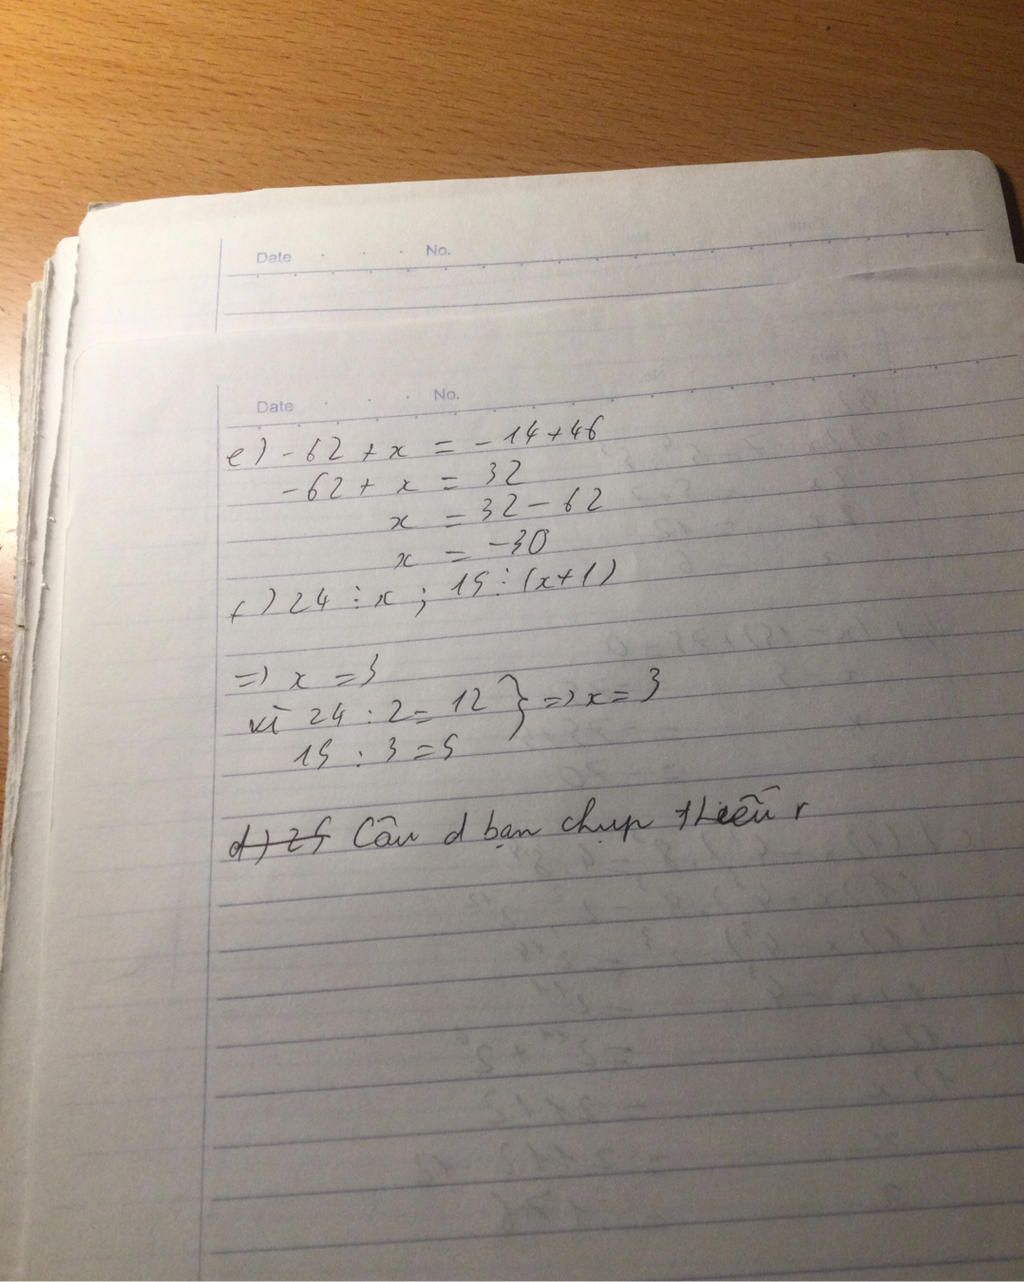 Date No.
Date No.
e) -62 + x = -14+46
-62 + x = 32
x = 32 - 62
x = -30
f) 24 ⋮ x ; 15 ⋮ (x+1)
=> x = 3
vì 24 : 2 = 12 } => x = 3
15 : 3 = 5
d) 25 Câu d bạn chụp thiếu r